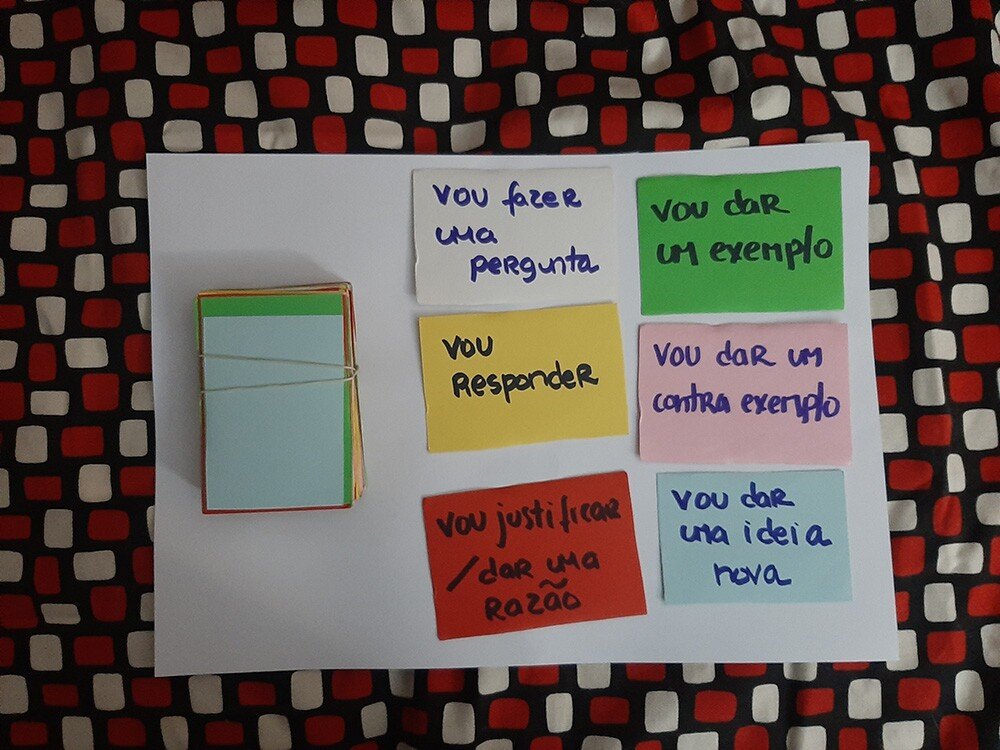 vou fazer
uma
pergunta
vou dar
um exemplo
vou
responder
vou dar um
contra exemplo
vou justificar
/dar uma
razão
vou dar
uma ideia
nova